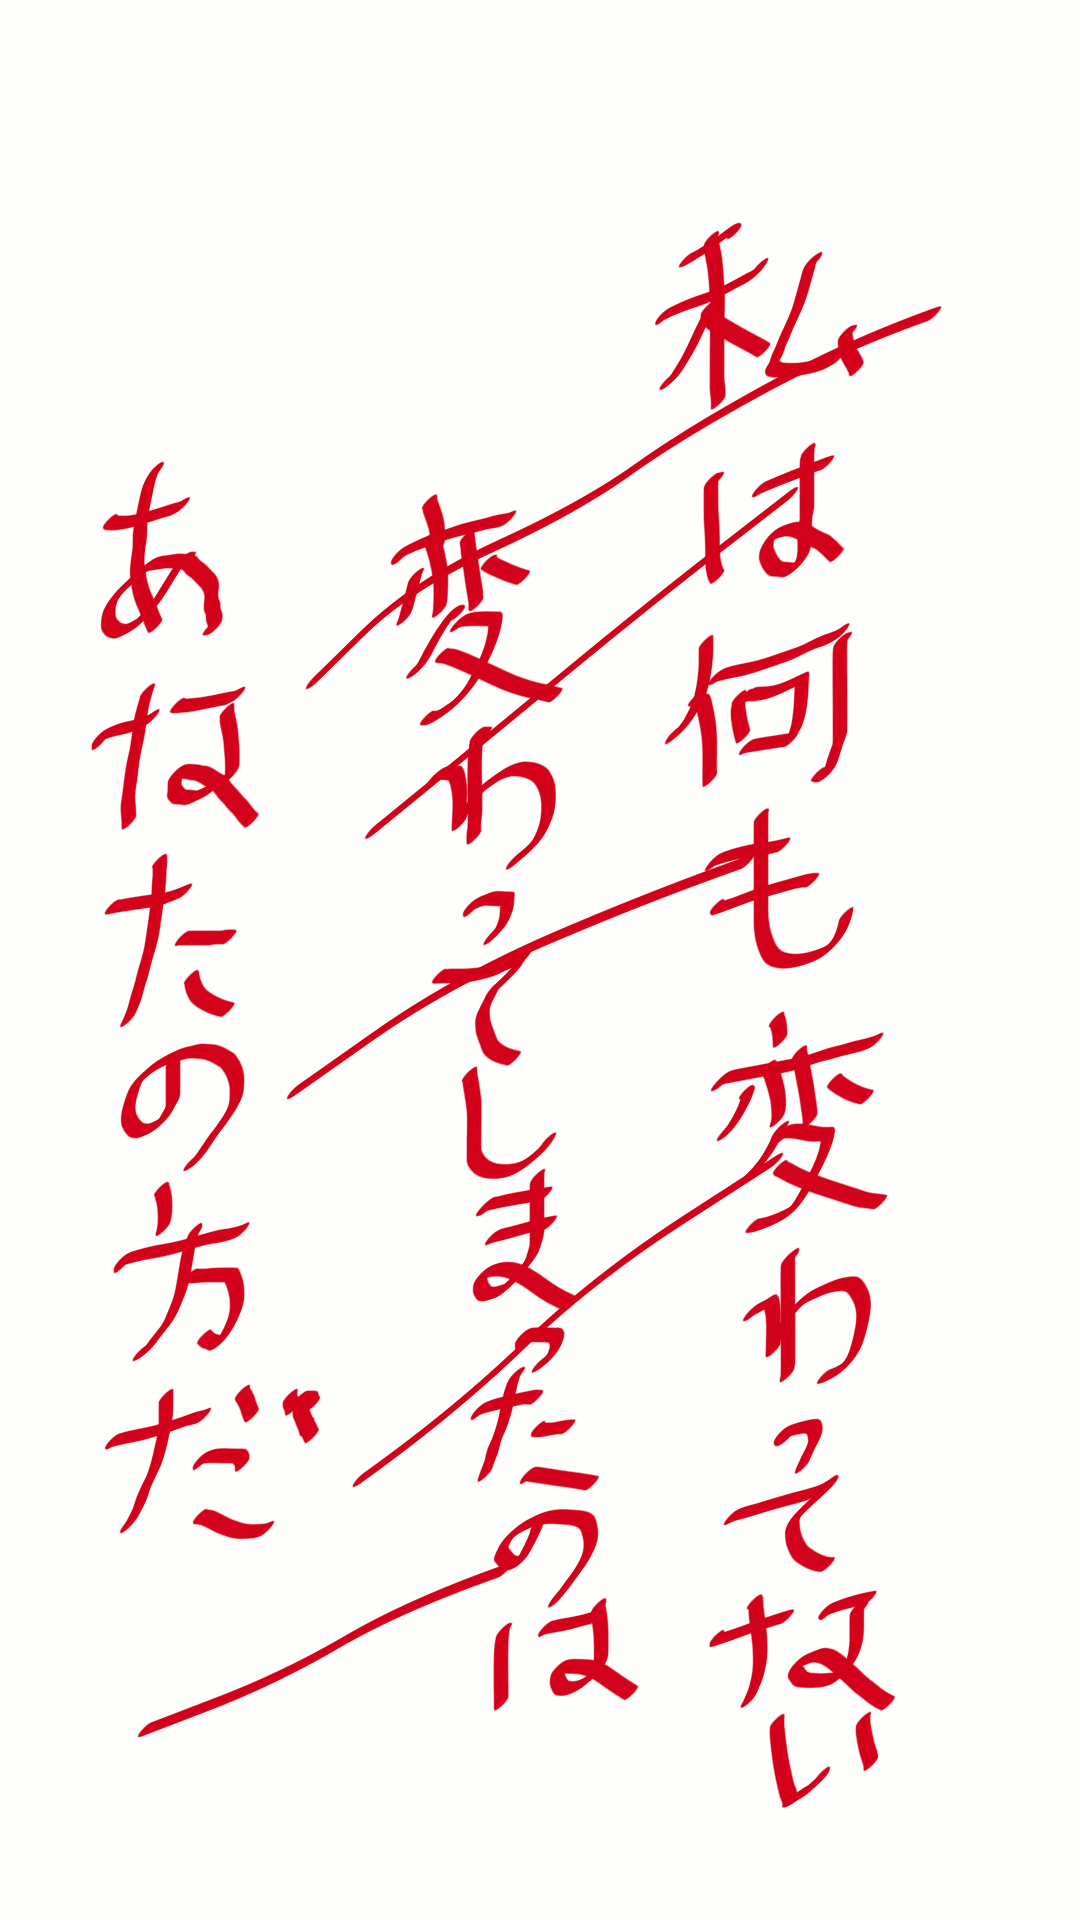 私は何も変わってない
変わってしまったのは
あなたの方だ